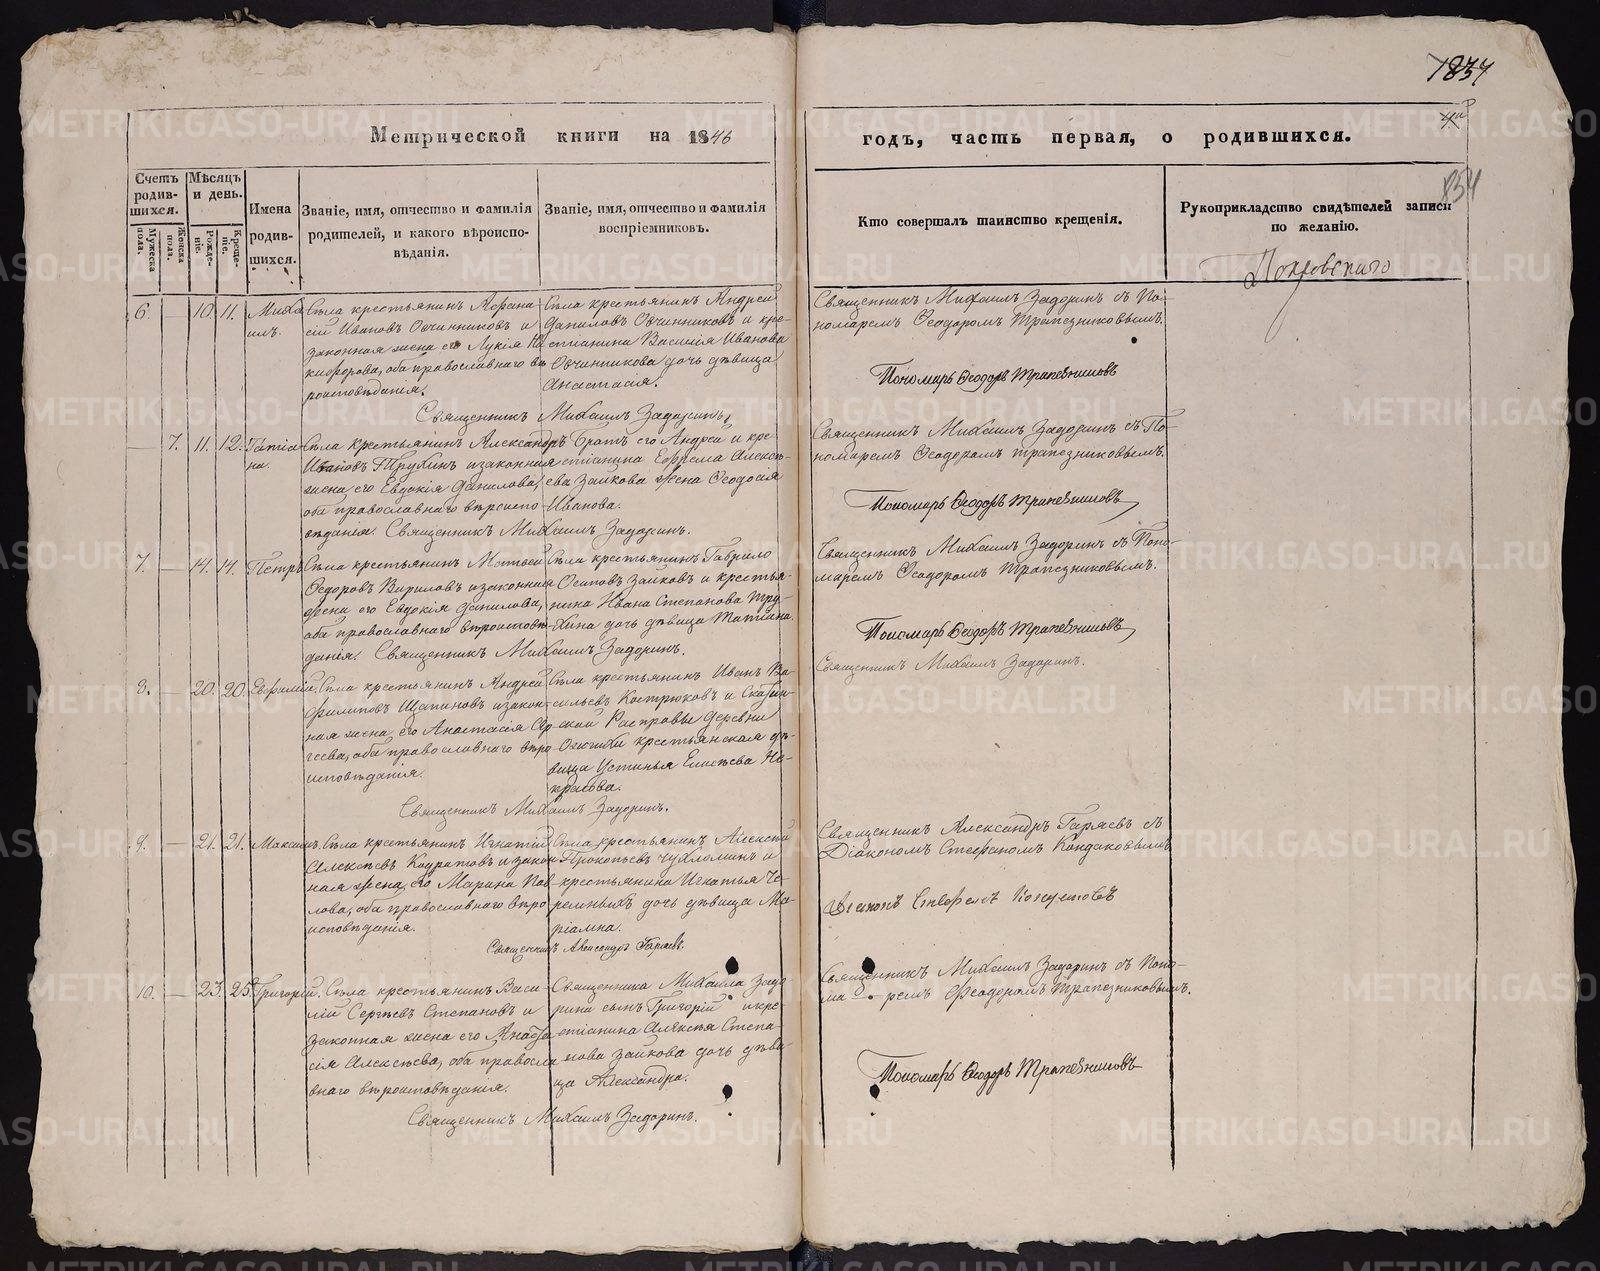 1837
Метрической книги на 1846
годъ, часть первая, о родившихся.
854
Счетъ родив-шихся.
Мужеска пола.
Женска пола.
Мѣсяцъ и день.
Рожде-ніе.
Креще-ніе.
Имена родив-шихся.
Званіе, имя, отчество и фамилія родителей, и какого вѣроиспо-вѣданія.
Званіе, имя, отчество и фамилія воспріемниковъ.
Кто совершалъ таинство крещенія.
Рукоприкладство свидѣтелей записи по желанію.
Покровскаго
6. — 10. 11. Миха-илъ.
Села крестьянинъ Афана-
сій Ивановъ Овчинниковъ и
законная жена его Лукія Ни-
кифорова, оба православнаго вѣ-
роисповѣданія.
Села крестьянинъ Андрей
Даниловъ Овчинниковъ и кре-
стьянина Василія Иванова
Овчинникова дочь дѣвица
Анастасія.
Священникъ Михаилъ Задоринъ.
Священникъ Михаилъ Задоринъ съ По-
номаремъ Ѳеодоромъ Трапезниковымъ.
Пономарь Ѳеодоръ Трапезниковъ
— 7. 11. 12. Татіа-на.
Села крестьянинъ Александръ
Ивановъ Трухинъ и законная
жена его Евдокія Данилова,
оба православнаго вѣроиспо-
вѣданія. Священникъ Михаилъ Задоринъ.
Братъ его Андрей и кре-
стіанина Ефрема Алексѣ-
ева Заикова жена Ѳеодосія
Иванова.
Священникъ Михаилъ Задоринъ съ По-
номаремъ Ѳеодоромъ Трапезниковымъ.
Пономарь Ѳеодоръ Трапезниковъ
7. — 14. 14. Петръ
Села крестьянинъ Матвей
Ѳедоровъ Вириловъ и законная
жена его Евдокія Данилова,
оба православнаго вѣроисповѣ-
данія. Священникъ Михаилъ Задоринъ.
Села крестьянинъ Гаврило
Осиповъ Заиковъ и крестья-
нина Ивана Степанова Тру-
хина дочь дѣвица Татіана.
Священникъ Михаилъ Задоринъ съ Поно-
маремъ Ѳеодоромъ Трапезниковымъ.
Пономарь Ѳеодоръ Трапезниковъ
8. — 20. 20. Евфимій.
Села крестьянинъ Андрей
Филиповъ Щапиновъ и закон-
ная жена его Анастасія Сер-
геева, оба православнаго вѣро-
исповѣданія.
Села крестьянинъ Иванъ Ва-
сильевъ Кострюковъ и
ской Расправы Деревни
крестьянская дѣ-
вица Устинья Елисѣева Не-
красова.
Священникъ Михаилъ Задоринъ.
Священникъ Михаилъ Задоринъ.
9. — 21. 21. Максимъ.
Села крестьянинъ Игнатій
Алексѣевъ и закон-
ная жена его Марина Пав-
лова, оба православнаго вѣро-
исповѣданія.
Села крестьянинъ Алексѣй
Прокопьевъ Чухломинъ и
крестьянина Игнатья Че-
ремныхъ дочь дѣвица Ма-
ріамна.
Священникъ Александръ Гаряевъ.
Священникъ Александръ Гаряевъ съ
Діакономъ Стефаномъ Кондаковымъ
Діаконъ Стефанъ
10. — 23. 25. Григорій.
Села крестьянинъ Васи-
лій Сергѣевъ Степановъ и
законная жена его Анаста-
сія Алексѣева, оба правосла-
внаго вѣроисповѣданія.
Священника Михаила Задо-
рина сынъ Григорій и кре-
стіанина Алексѣя Степа-
нова Заикова дочь дѣви-
ца Александра.
Священникъ Михаилъ Задоринъ.
Священникъ Михаилъ Задоринъ съ Поно-
маремъ Ѳеодоромъ Трапезниковымъ.
Пономарь Ѳеодоръ Трапезниковъ
METRIKI.GASO-URAL.RU